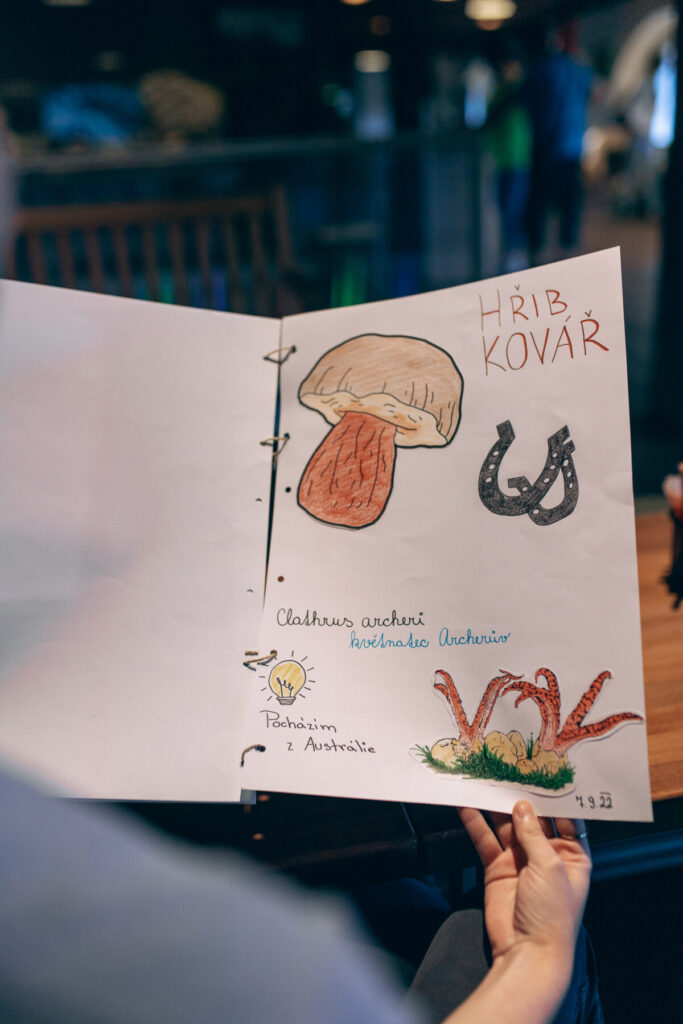 HŘIB
KOVÁŘ
Clathrus archeri
květnatec Archerův
Pocházím
z Austrálie
7.9.22